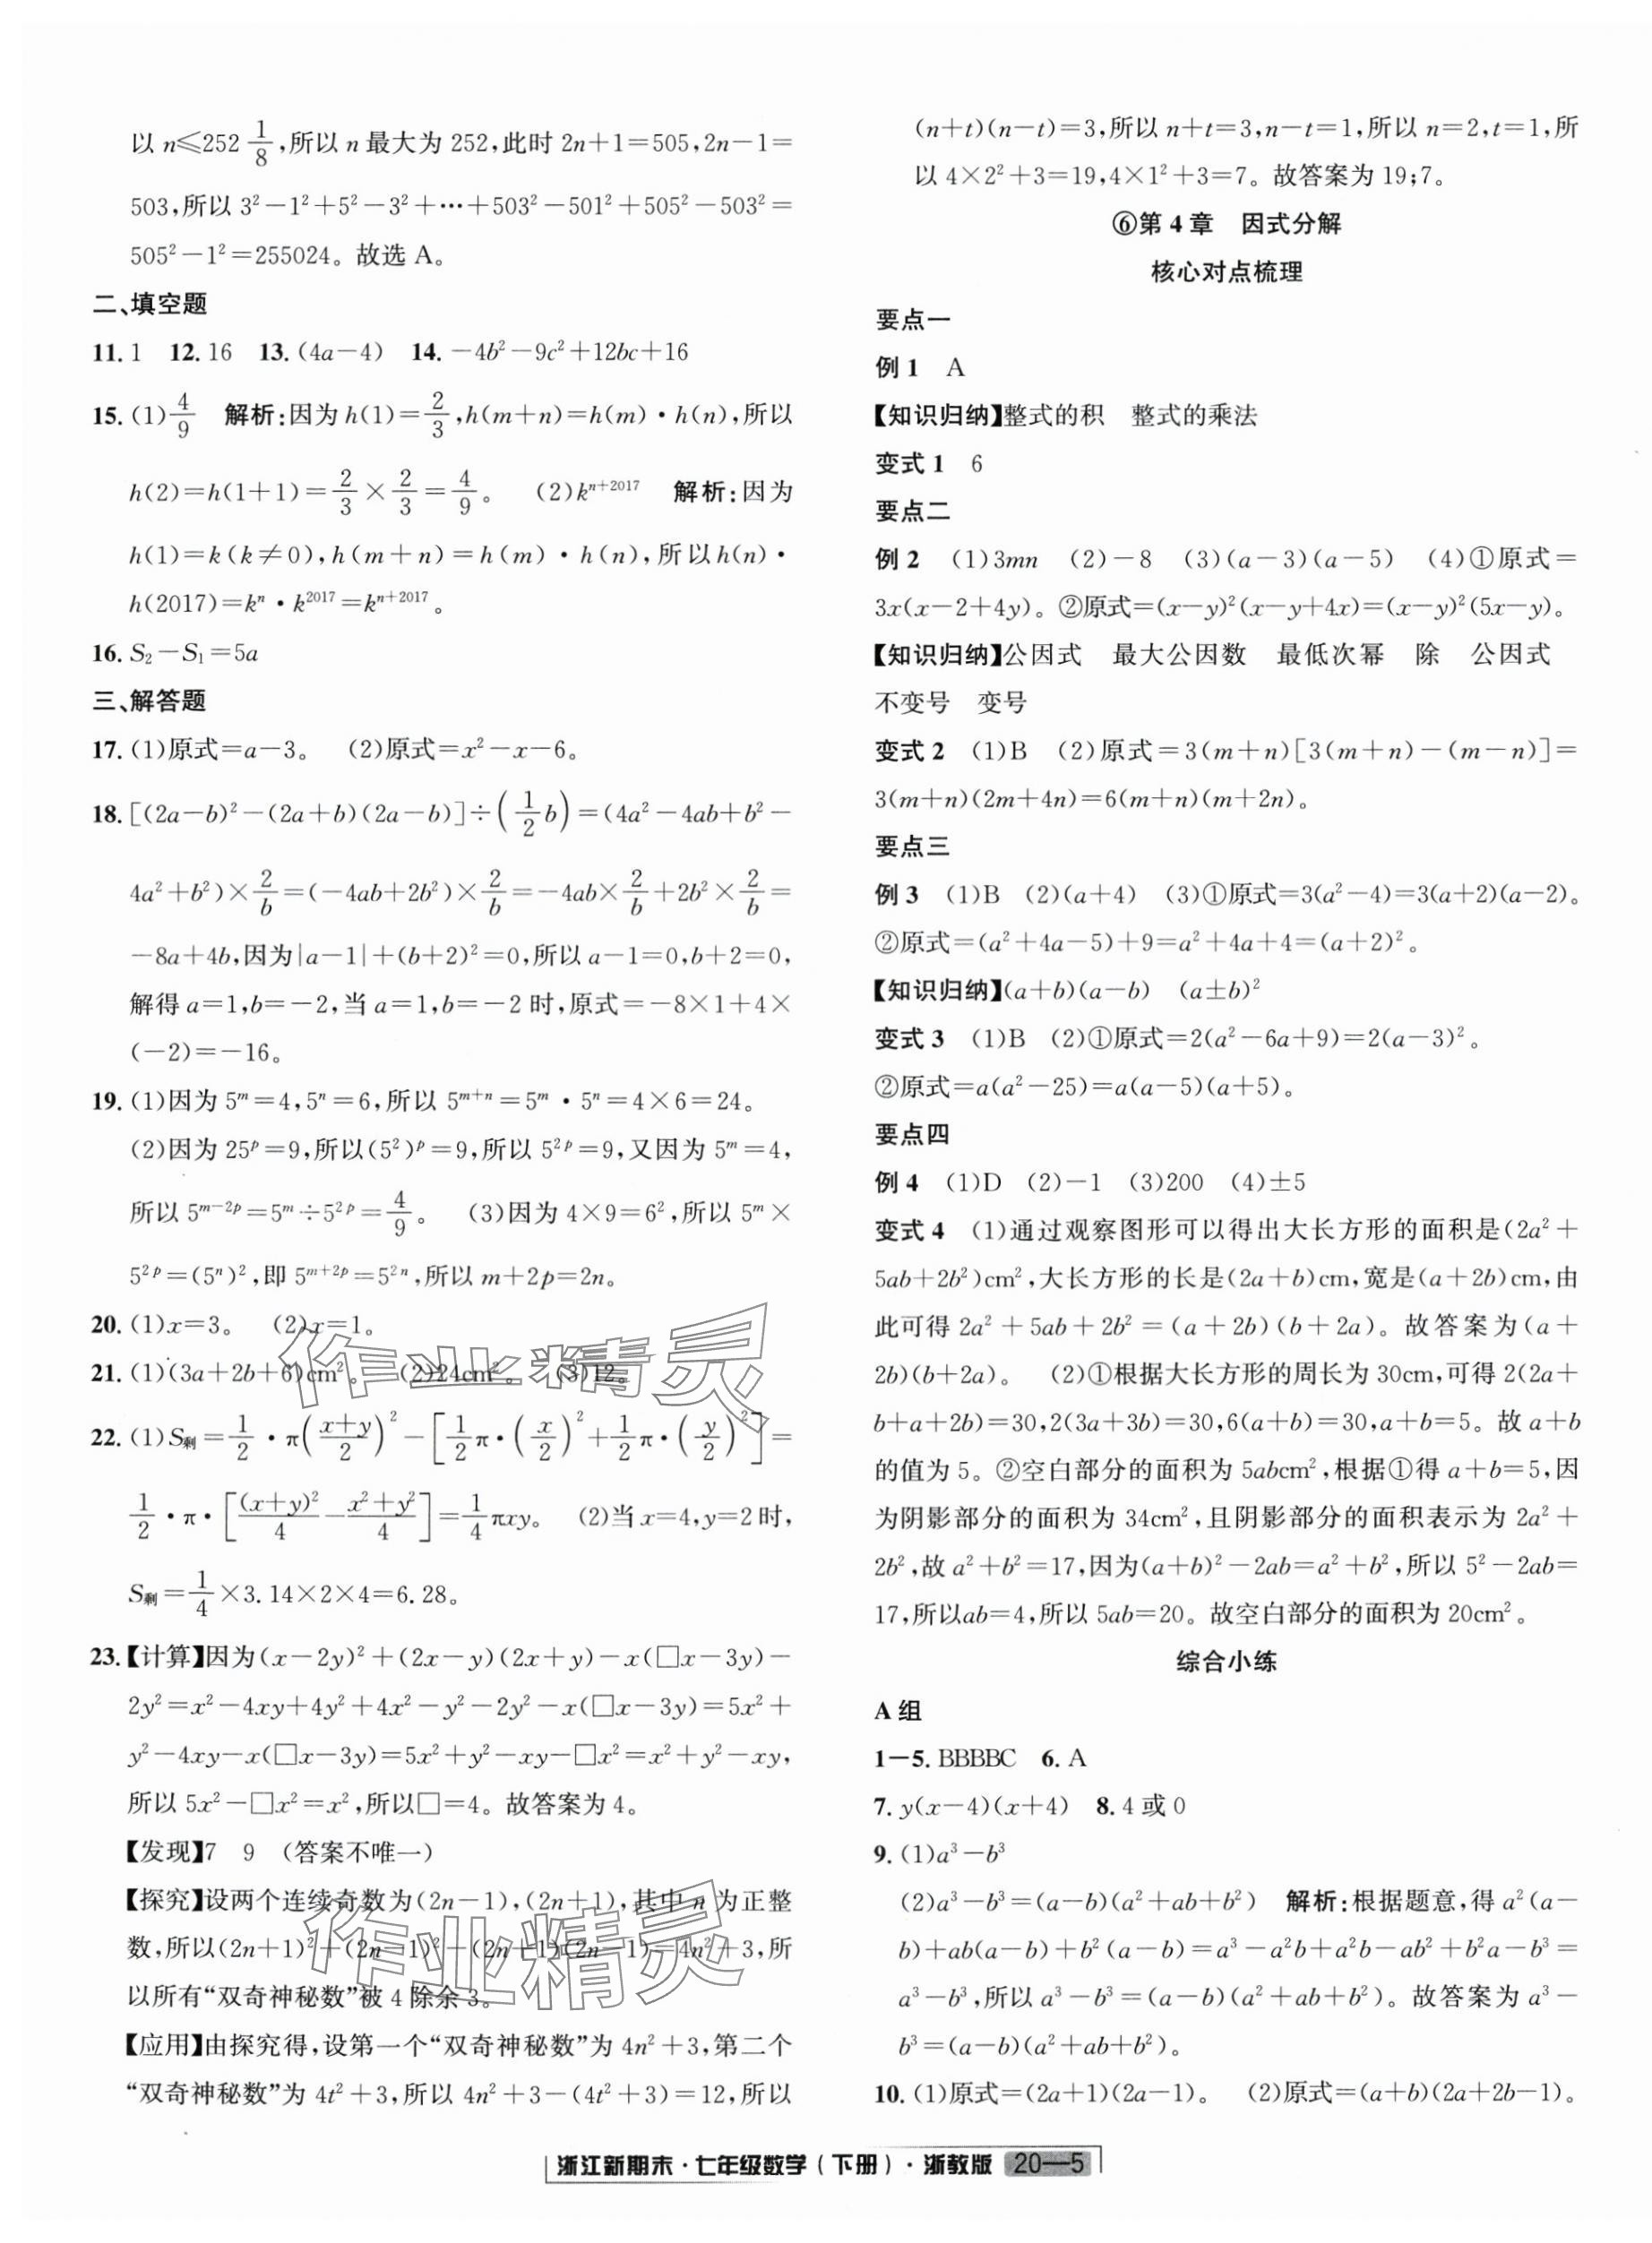 以 n≤252 1/8,所以 n 最大为 252,此时 2n+1=505,2n-1=
503,所以 3²-1²+5²-3²+…+503²-501²+505²-503²=
505²-1²=255024。故选 A。
二、填空题
11. 1 12. 16 13. (4a-4) 14. -4b²-9c²+12bc+16
15. (1) 4/9 解析:因为 h(1)=2/3,h(m+n)=h(m)·h(n),所以
h(2)=h(1+1)=2/3×2/3=4/9。 (2)kⁿ⁺²⁰¹⁷ 解析:因为
h(1)=k(k≠0),h(m+n)=h(m)·h(n),所以h(n)·
h(2017)=kⁿ·k²⁰¹⁷=kⁿ⁺²⁰¹⁷。
16. S₂-S₁=5a
三、解答题
17. (1)原式=a-3。 (2)原式=x²-x-6。
18. [(2a-b)²-(2a+b)(2a-b)]÷(1/2 b)=(4a²-4ab+b²-
4a²+b²)×2/b=(-4ab+2b²)×2/b=-4ab×2/b+2b²×2/b=
-8a+4b,因为|a-1|+(b+2)²=0,所以 a-1=0,b+2=0,
解得 a=1,b=-2,当 a=1,b=-2 时,原式=-8×1+4×
(-2)=-16。
19. (1)因为 5^m=4,5^n=6,所以 5^(m+n)=5^m·5^n=4×6=24。
(2)因为 25^p=9,所以(5²)^p=9,所以 5^(2p)=9,又因为 5^m=4,
所以 5^(m-2p)=5^m÷5^(2p)=4/9。 (3)因为 4×9=6²,所以 5^m×
5^(2p)=(5^n)²,即 5^(m+2p)=5^(2n),所以 m+2p=2n。
20. (1)x=3。 (2)x=1。
21. (1)(3a+2b+6)cm²。 (2)24cm²。 (3)12。
22. (1)S剩=1/2·π((x+y)/2)²-[1/2 π·(x/2)²+1/2 π·(y/2)²]=
1/2·π·[(x+y)²/4-(x²+y²)/4]=1/4 πxy。 (2)当 x=4,y=2 时,
S剩=1/4×3.14×2×4=6.28。
23. 【计算】因为(x-2y)²+(2x-y)(2x+y)-x(□x-3y)-
2y²=x²-4xy+4y²+4x²-y²-2y²-x(□x-3y)=5x²+
y²-4xy-x(□x-3y)=5x²+y²-xy-□x²=x²+y²-xy,
所以 5x²-□x²=x²,所以□=4。故答案为 4。
【发现】7 9 (答案不唯一)
【探究】设两个连续奇数为(2n-1),(2n+1),其中 n 为正整
数,所以(2n+1)²+(2n-1)²-(2n+1)(2n-1)=4n²+3,所
以所有“双奇神秘数”被 4 除余 3。
【应用】由探究得,设第一个“双奇神秘数”为 4n²+3,第二个
“双奇神秘数”为 4t²+3,所以 4n²+3-(4t²+3)=12,所以
(n+t)(n-t)=3,所以 n+t=3,n-t=1,所以 n=2,t=1,所
以 4×2²+3=19,4×1²+3=7。故答案为 19;7。
⑥第 4 章 因式分解
核心对点梳理
要点一
例 1 A
【知识归纳】整式的积 整式的乘法
变式 1 6
要点二
例 2 (1)3mn (2)-8 (3)(a-3)(a-5) (4)①原式=
3x(x-2+4y)。②原式=(x-y)²(x-y+4x)=(x-y)²(5x-y)。
【知识归纳】公因式 最大公因数 最低次幂 除 公因式
不变号 变号
变式 2 (1)B (2)原式=3(m+n)[3(m+n)-(m-n)]=
3(m+n)(2m+4n)=6(m+n)(m+2n)。
要点三
例 3 (1)B (2)(a+4) (3)①原式=3(a²-4)=3(a+2)(a-2)。
②原式=(a²+4a-5)+9=a²+4a+4=(a+2)²。
【知识归纳】(a+b)(a-b) (a±b)²
变式 3 (1)B (2)①原式=2(a²-6a+9)=2(a-3)²。
②原式=a(a²-25)=a(a-5)(a+5)。
要点四
例 4 (1)D (2)-1 (3)200 (4)±5
变式 4 (1)通过观察图形可以得出大长方形的面积是(2a²+
5ab+2b²)cm²,大长方形的长是(2a+b)cm,宽是(a+2b)cm,由
此可得 2a²+5ab+2b²=(a+2b)(b+2a)。故答案为(a+
2b)(b+2a)。 (2)①根据大长方形的周长为 30cm,可得 2(2a+
b+a+2b)=30,2(3a+3b)=30,6(a+b)=30,a+b=5。故 a+b
的值为 5。②空白部分的面积为 5abcm²,根据①得 a+b=5,因
为阴影部分的面积为 34cm²,且阴影部分的面积表示为 2a²+
2b²,故 a²+b²=17,因为(a+b)²-2ab=a²+b²,所以 5²-2ab=
17,所以ab=4,所以 5ab=20。故空白部分的面积为 20cm²。
综合小练
A 组
1—5. BBBBC 6. A
7. y(x-4)(x+4) 8. 4 或 0
9. (1)a³-b³
(2)a³-b³=(a-b)(a²+ab+b²) 解析:根据题意,得 a²(a-
b)+ab(a-b)+b²(a-b)=a³-a²b+a²b-ab²+b²a-b³=
a³-b³,所以 a³-b³=(a-b)(a²+ab+b²)。故答案为 a³-
b³=(a-b)(a²+ab+b²)。
10. (1)原式=(2a+1)(2a-1)。 (2)原式=(a+b)(2a+2b-1)。
浙江新期末·七年级数学(下册)·浙教版 20—5
作业精灵
作业精灵